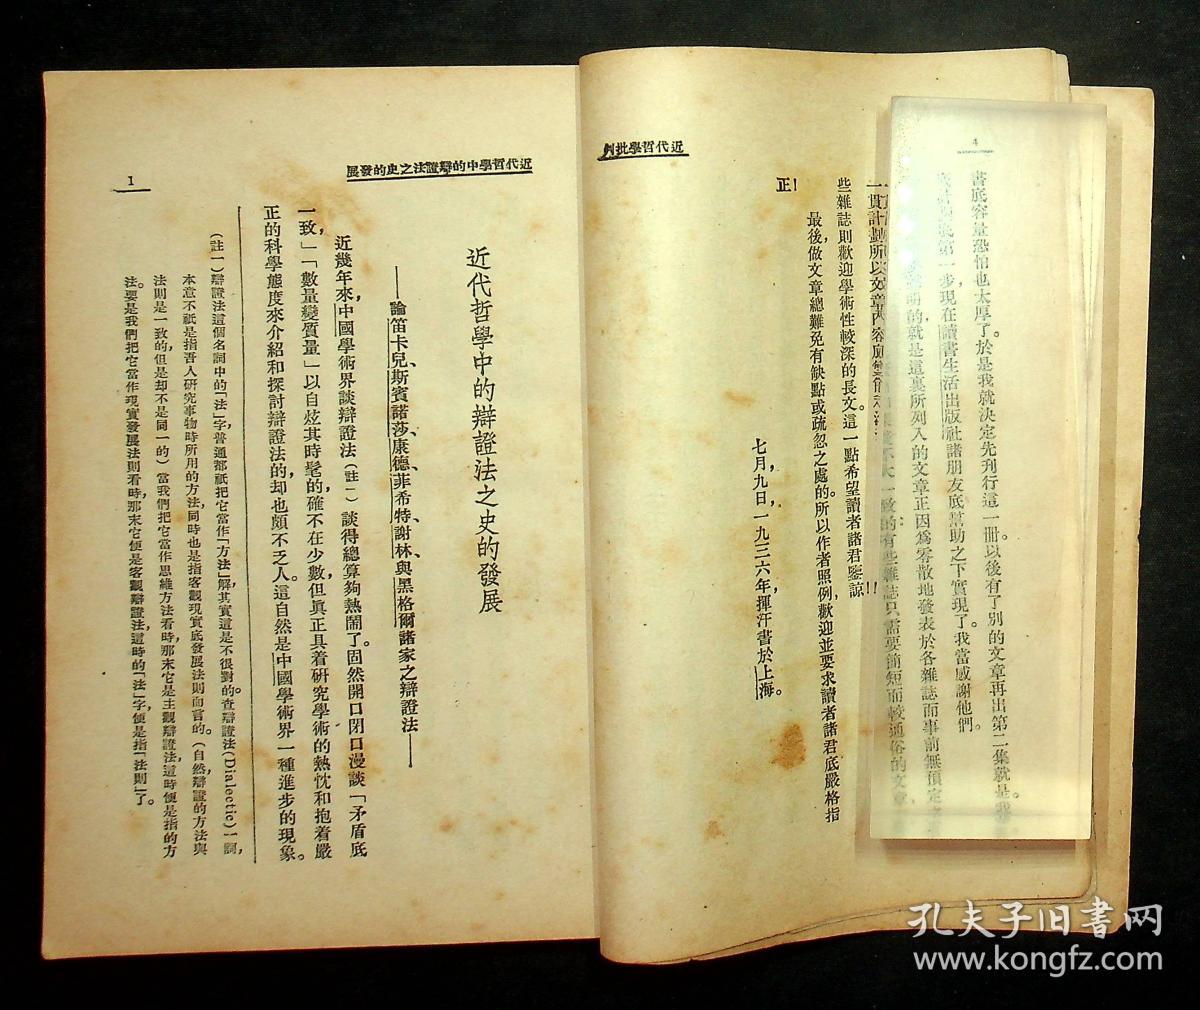 4
近代哲學批判
書底容量恐怕也太厚了。於是我就決定先刋行這一冊。以後有了別的文章再出第二集就是。我
第一步，現在讀書生活出版社諸朋友底幫助之下實現了。我當感謝他們。
的就是這裏所列入的文章正因爲零散地發表於各雜誌而事前無預定
一貫計劃所以文章內容
一致的有些雜誌只需要簡短而較通俗的文章，
些雜誌則歡迎學術性較深的長文。這一點希望讀者諸君鑒諒！
最後做文章總難免有缺點或疏忽之處的。所以作者照例歡迎並要求讀者諸君底嚴格指
正！
七月九日，一九三六年，揮汗書於上海。
近代哲學中的辯證法之史的發展
1
近代哲學中的辯證法之史的發展
——論笛卡兒、斯賓諾莎、康德、菲希特、謝林、與黑格爾諸家之辯證法——
近幾年來，中國學術界談辯證法（註一）談得總算夠熱鬧了。固然開口閉口漫談「矛盾底
一致，」「數量變質量」以自炫其時髦的，確不在少數，但眞正具着硏究學術的熱忱和抱着嚴
正的科學態度來介紹和探討辯證法的，却也頗不乏人。這自然是中國學術界一種進步的現象。
（註一）辯證法這個名詞中的「法」字，普通都祇把它當作「方法」解，其實這是不很對的。查辯證法(Dialectic)一詞，
本意不祇是指吾人硏究事物時所用的方法，同時也是指客觀現實底發展法則而言的。（自然，辯證的方法與
法則是一致的，但是却不是同一的）當我們把它當作思維方法看時，那末它是主觀辯證法，這時便是指的方
法。要是我們把它當作現實發展法則看時，那末它便是客觀辯證法，這時的「法」字，便是指「法則」了。
孔夫子旧書网
www.kongfz.com